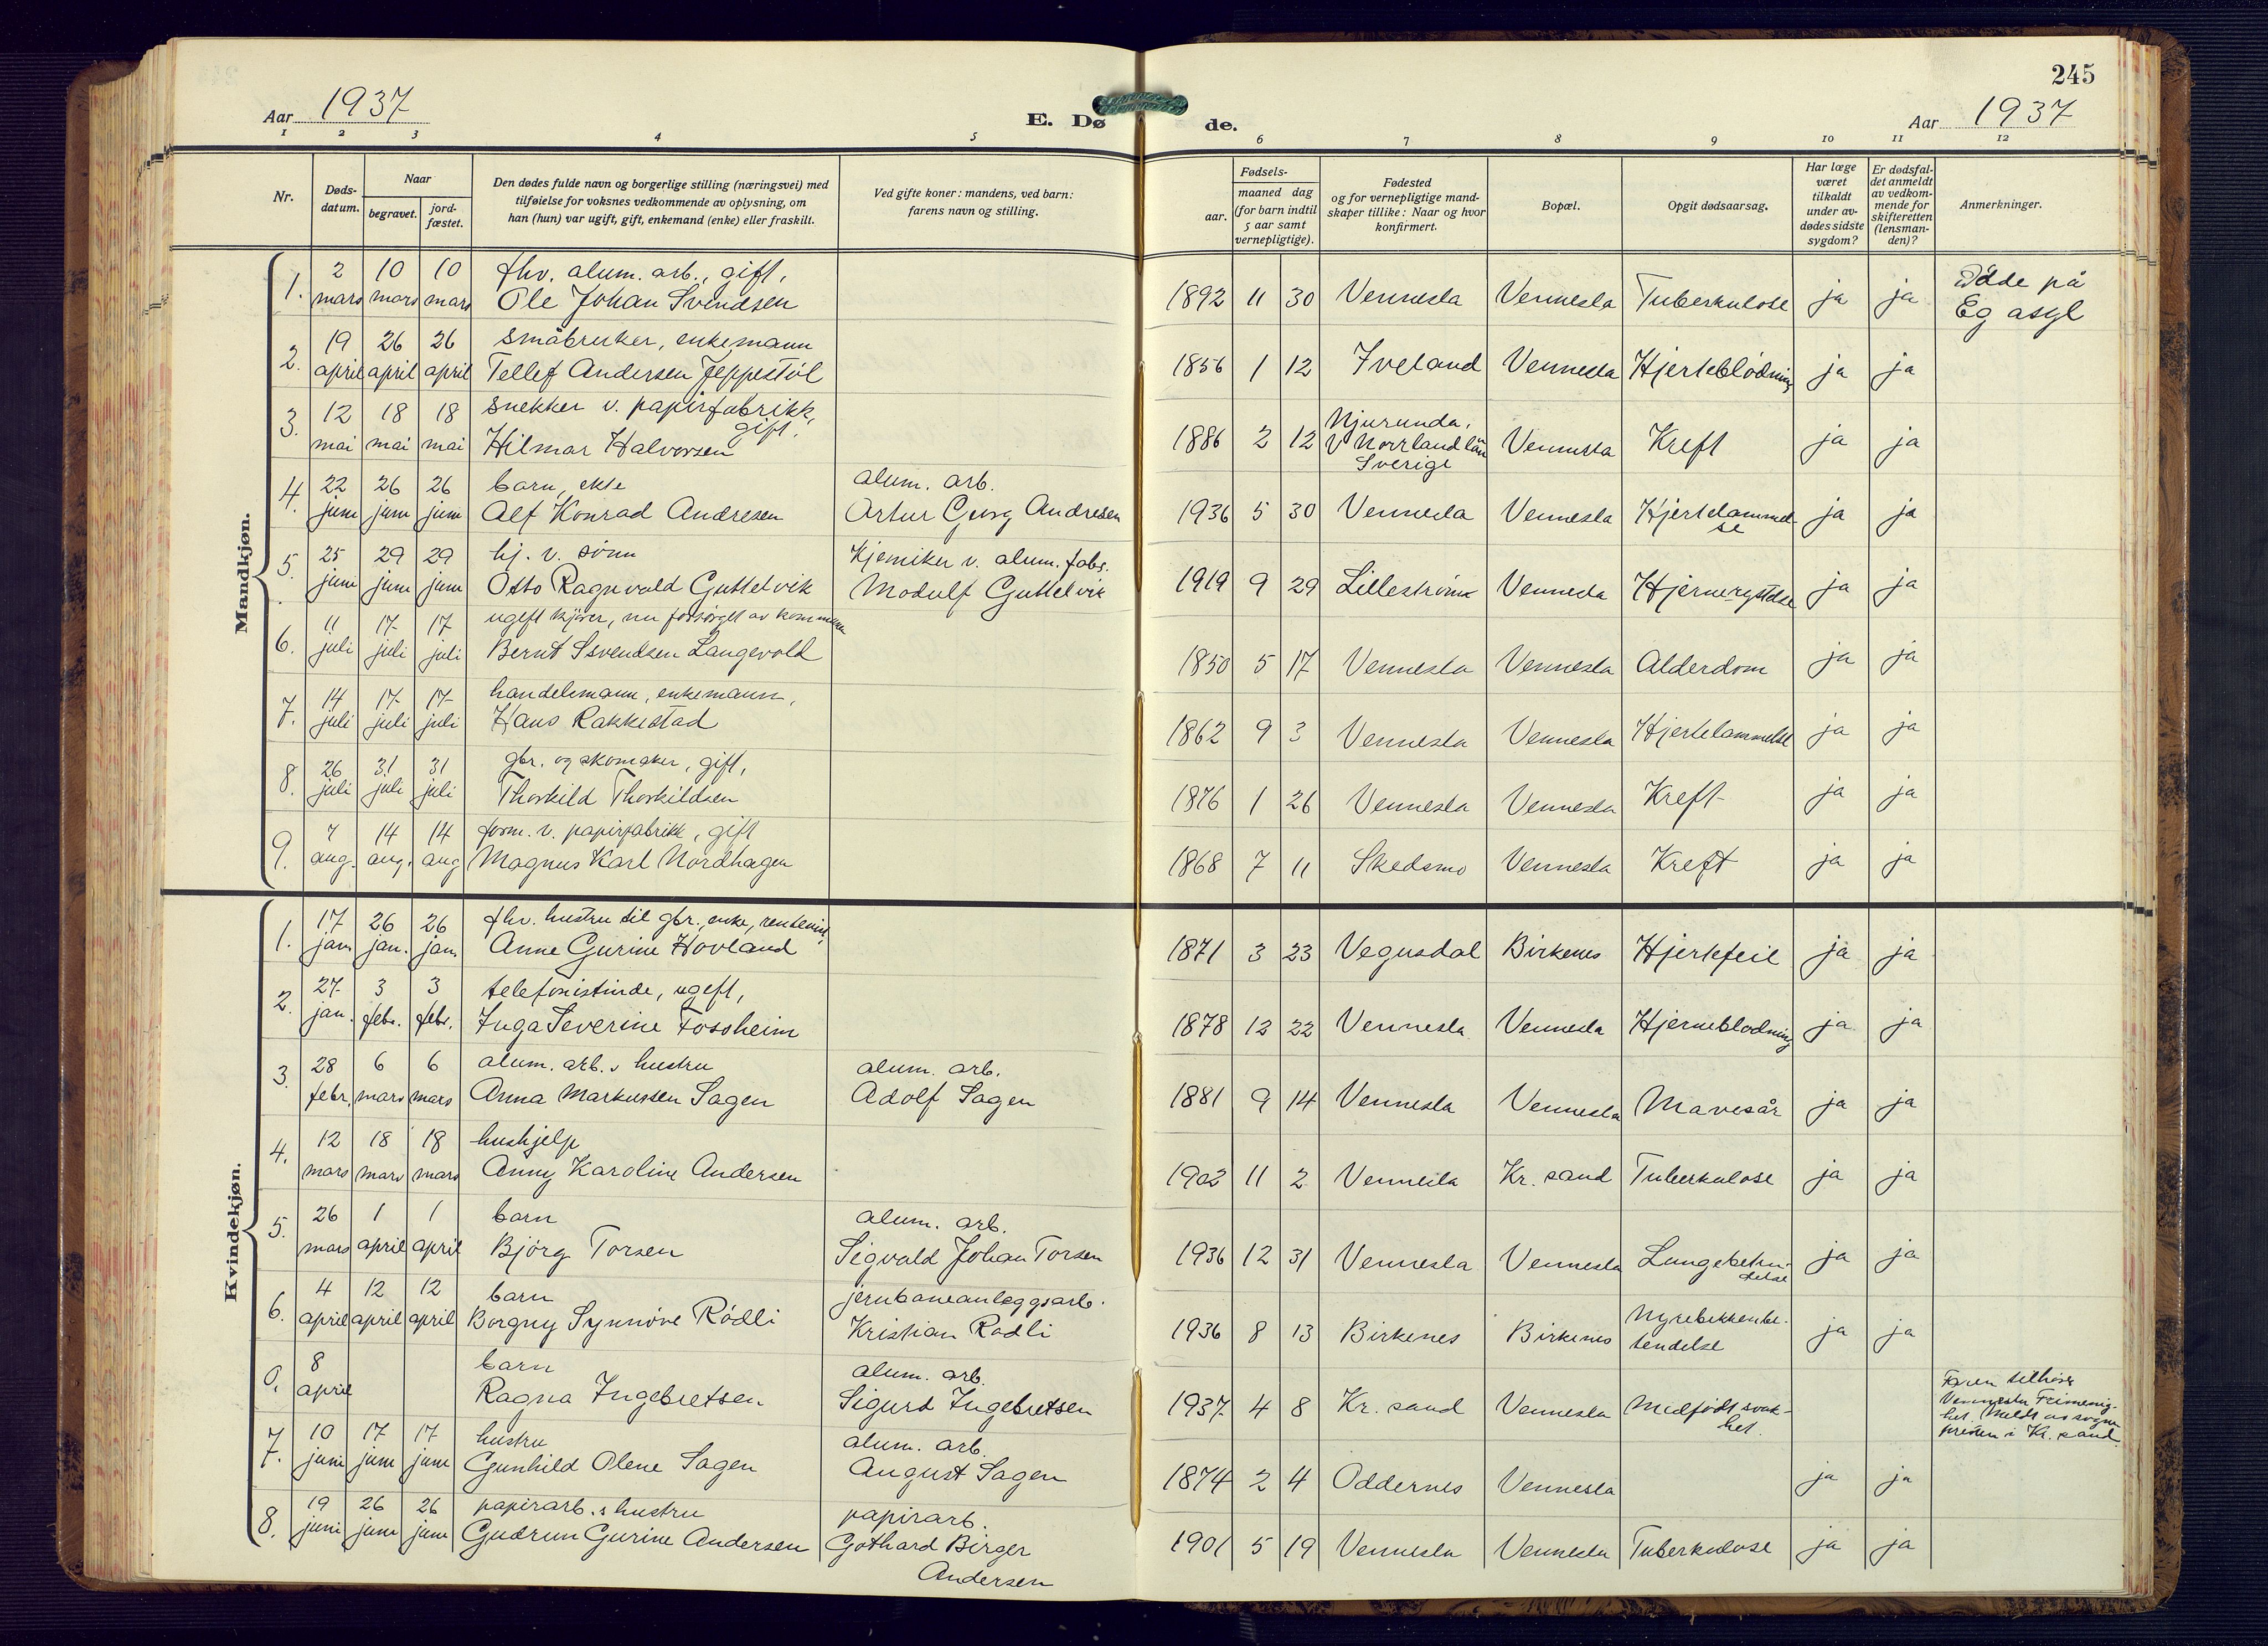 245
Aar 1937
E. Dø
de.
Aar 1937
1 2 3 4 5 6 7 8 9 10 11 12
Nr.
Døds-
datum.
Naar
begravet.
jord-
fæstet.
Den dødes fulde navn og borgerlige stilling (næringsvei) med
tilføielse for voksnes vedkommende av oplysning, om
han (hun) var ugift, gift, enkemand (enke) eller fraskilt.
Ved gifte koner: mandens, ved barn:
farens navn og stilling.
Fødsels-
aar.
maaned dag
(for barn indtil
5 aar samt
vernepligtige).
Fødested
og for vernepligtige mand-
skaper tillike: Naar og hvor
konfirmert.
Bopæl.
Opgit dødsaarsag.
Har læge
været
tilkaldt
under av-
dødes sidste
sygdom?
Er dødsfal-
det anmeldt
av vedkom-
mende for
skifteretten
(lensman-
den)?
Anmerkninger.
Mandkjøn.
2 10 10 fhv. alum. arb., gift,
1. mars mars mars Ole Johan Svendsen
1892 11 30 Vennesla Vennesla Tuberkulose ja ja Døde på
Eg asyl
19 26 26 småbruker, enkemann
2. april april april Tellef Andersen Jeppestöl
1856 1 12 Iveland Vennesla Hjerteblødning ja ja
12 18 18 snekker v. papirfabrikk,
gift.
3. mai mai mai Hilmar Halvorsen
1886 2 12 Njurunda,
V Norrland län
Sverige
Vennesla Kreft ja ja
22 26 26 barn, ekte alum. arb.
4. juni juni juni Alf Konrad Andresen Artur Georg Andresen
1936 5 30 Vennesla Vennesla Hjertelammel-
se
ja ja
25 29 29 hj. v. sønn Kjemiker v. alum. fabr.
5. juni juni juni Otto Ragnvald Guttelvik Modulf Guttelvik
1919 9 29 Lillestrøm Vennesla Hjernerystelse ja ja
11 17 17 ugift kjører, nu forsørget av kommunen
6. juli juli juli Bernt Ssvendsen Langevold
1850 5 17 Vennesla Vennesla Alderdom ja ja
14 17 17 handelsmann, enkemann,
7. juli juli juli Hans Rakkestad
1862 9 3 Vennesla Vennesla Hjertelammelse ja ja
26 31 31 gbr. og skomaker, gift,
8. juli juli juli Thorkild Thorkildsen
1876 1 26 Vennesla Vennesla Kreft ja ja
7 14 14 form. v. papirfabrikk, gift
9. aug. aug. aug Magnus Karl Nordhagen
1868 7 11 Skedsmo Vennesla Kreft ja ja
Kvindekjøn.
17 26 26 fhv. hustru til gbr., enke,
1. jan. jan. jan. Anne Gurine Hovland
1871 3 23 Vegusdal Birkenes Hjertefeil ja ja
27 3 3 telefonistinde, ugift,
2. jan. febr. febr. Inga Severine Fossheim
1878 12 22 Vennesla Vennesla Hjerneblødning ja ja
28 6 6 alum. arb.s hustru alum. arb.
3. febr. mars mars Anna Markussen Sagen Adolf Sagen
1881 9 14 Vennesla Vennesla Mavesår ja ja
12 18 18 hushjelp
4. mars mars mars Anny Karoline Andersen
1902 11 2 Vennesla Kr. sand Tuberkulose ja ja
26 1 1 barn alum. arb.
5. mars april april Bjørg Torsen Sigvald Johan Torsen
1936 12 31 Vennesla Vennesla Lungebeten-
delse
ja ja
4 12 12 barn jernbaneanleggsarb.
6. april april april Borgny Synnöve Rødli Kristian Rødli
1936 8 13 Birkenes Birkenes Nyrebekkenbe-
tendelse
ja ja
8 barn alum. arb.
0. april Ragna Ingebretsen Sigurd Ingebretsen
1937 4 8 Kr. sand Vennesla Medfødt svak-
het.
Faren tilhører
Vennesla Frimenig-
het. Meldt av sogne
presten i Kr. sand
10 17 17 hustru alum. arb.
7. juni juni juni Gunhild Olene Sagen August Sagen
1874 2 4 Oddernes Vennesla ja ja
19 26 26 papirarb.s hustru papirarb.
8. juni juni juni Gudrun Gurine Andersen Gothard Birger
Andersen
1901 5 19 Vennesla Vennesla Tuberkulose ja ja